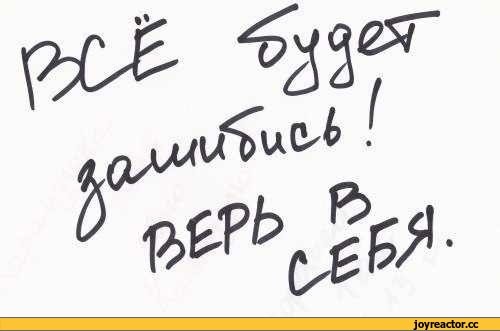 ВСЁ будет
зашибись!
ВЕРЬ В
СЕБЯ.
joyreactor.cc